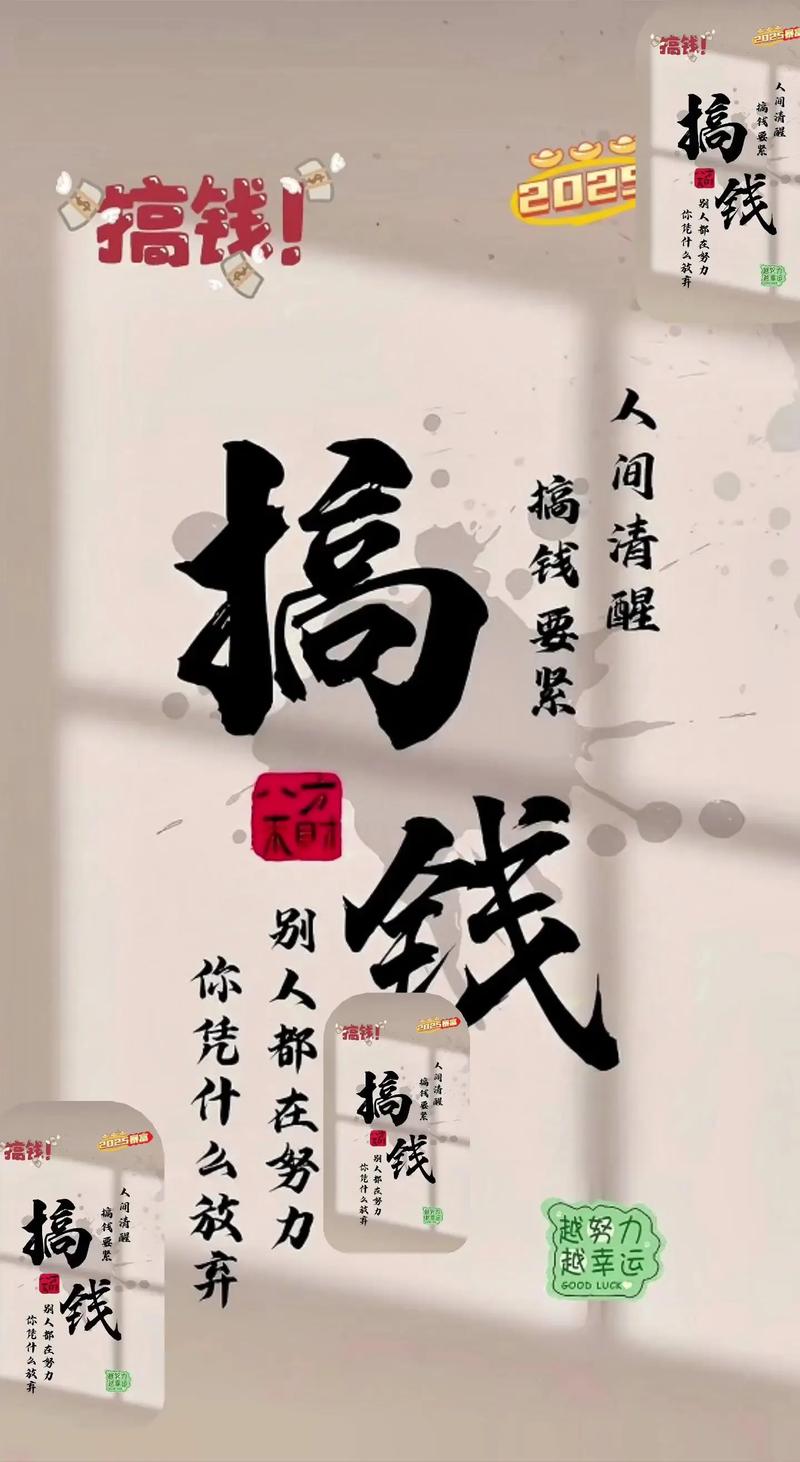 搞钱!
2025
搞钱
人间清醒
搞钱要紧
八方
来财
别人都在努力
你凭什么放弃
越努力
越幸运
GOOD LUCK
搞钱!
2025暴富
搞钱
人间清醒
搞钱要紧
别人都在努力
你凭什么放弃
越努力
越幸运
搞钱!
2025暴富
搞钱
人间清醒
搞钱要紧
别人都在努力
你凭什么放弃
越努力
越幸运
搞钱!
2025暴富
搞钱
人间清醒
搞钱要紧
别人都在努力
你凭什么放弃
越努力
越幸运